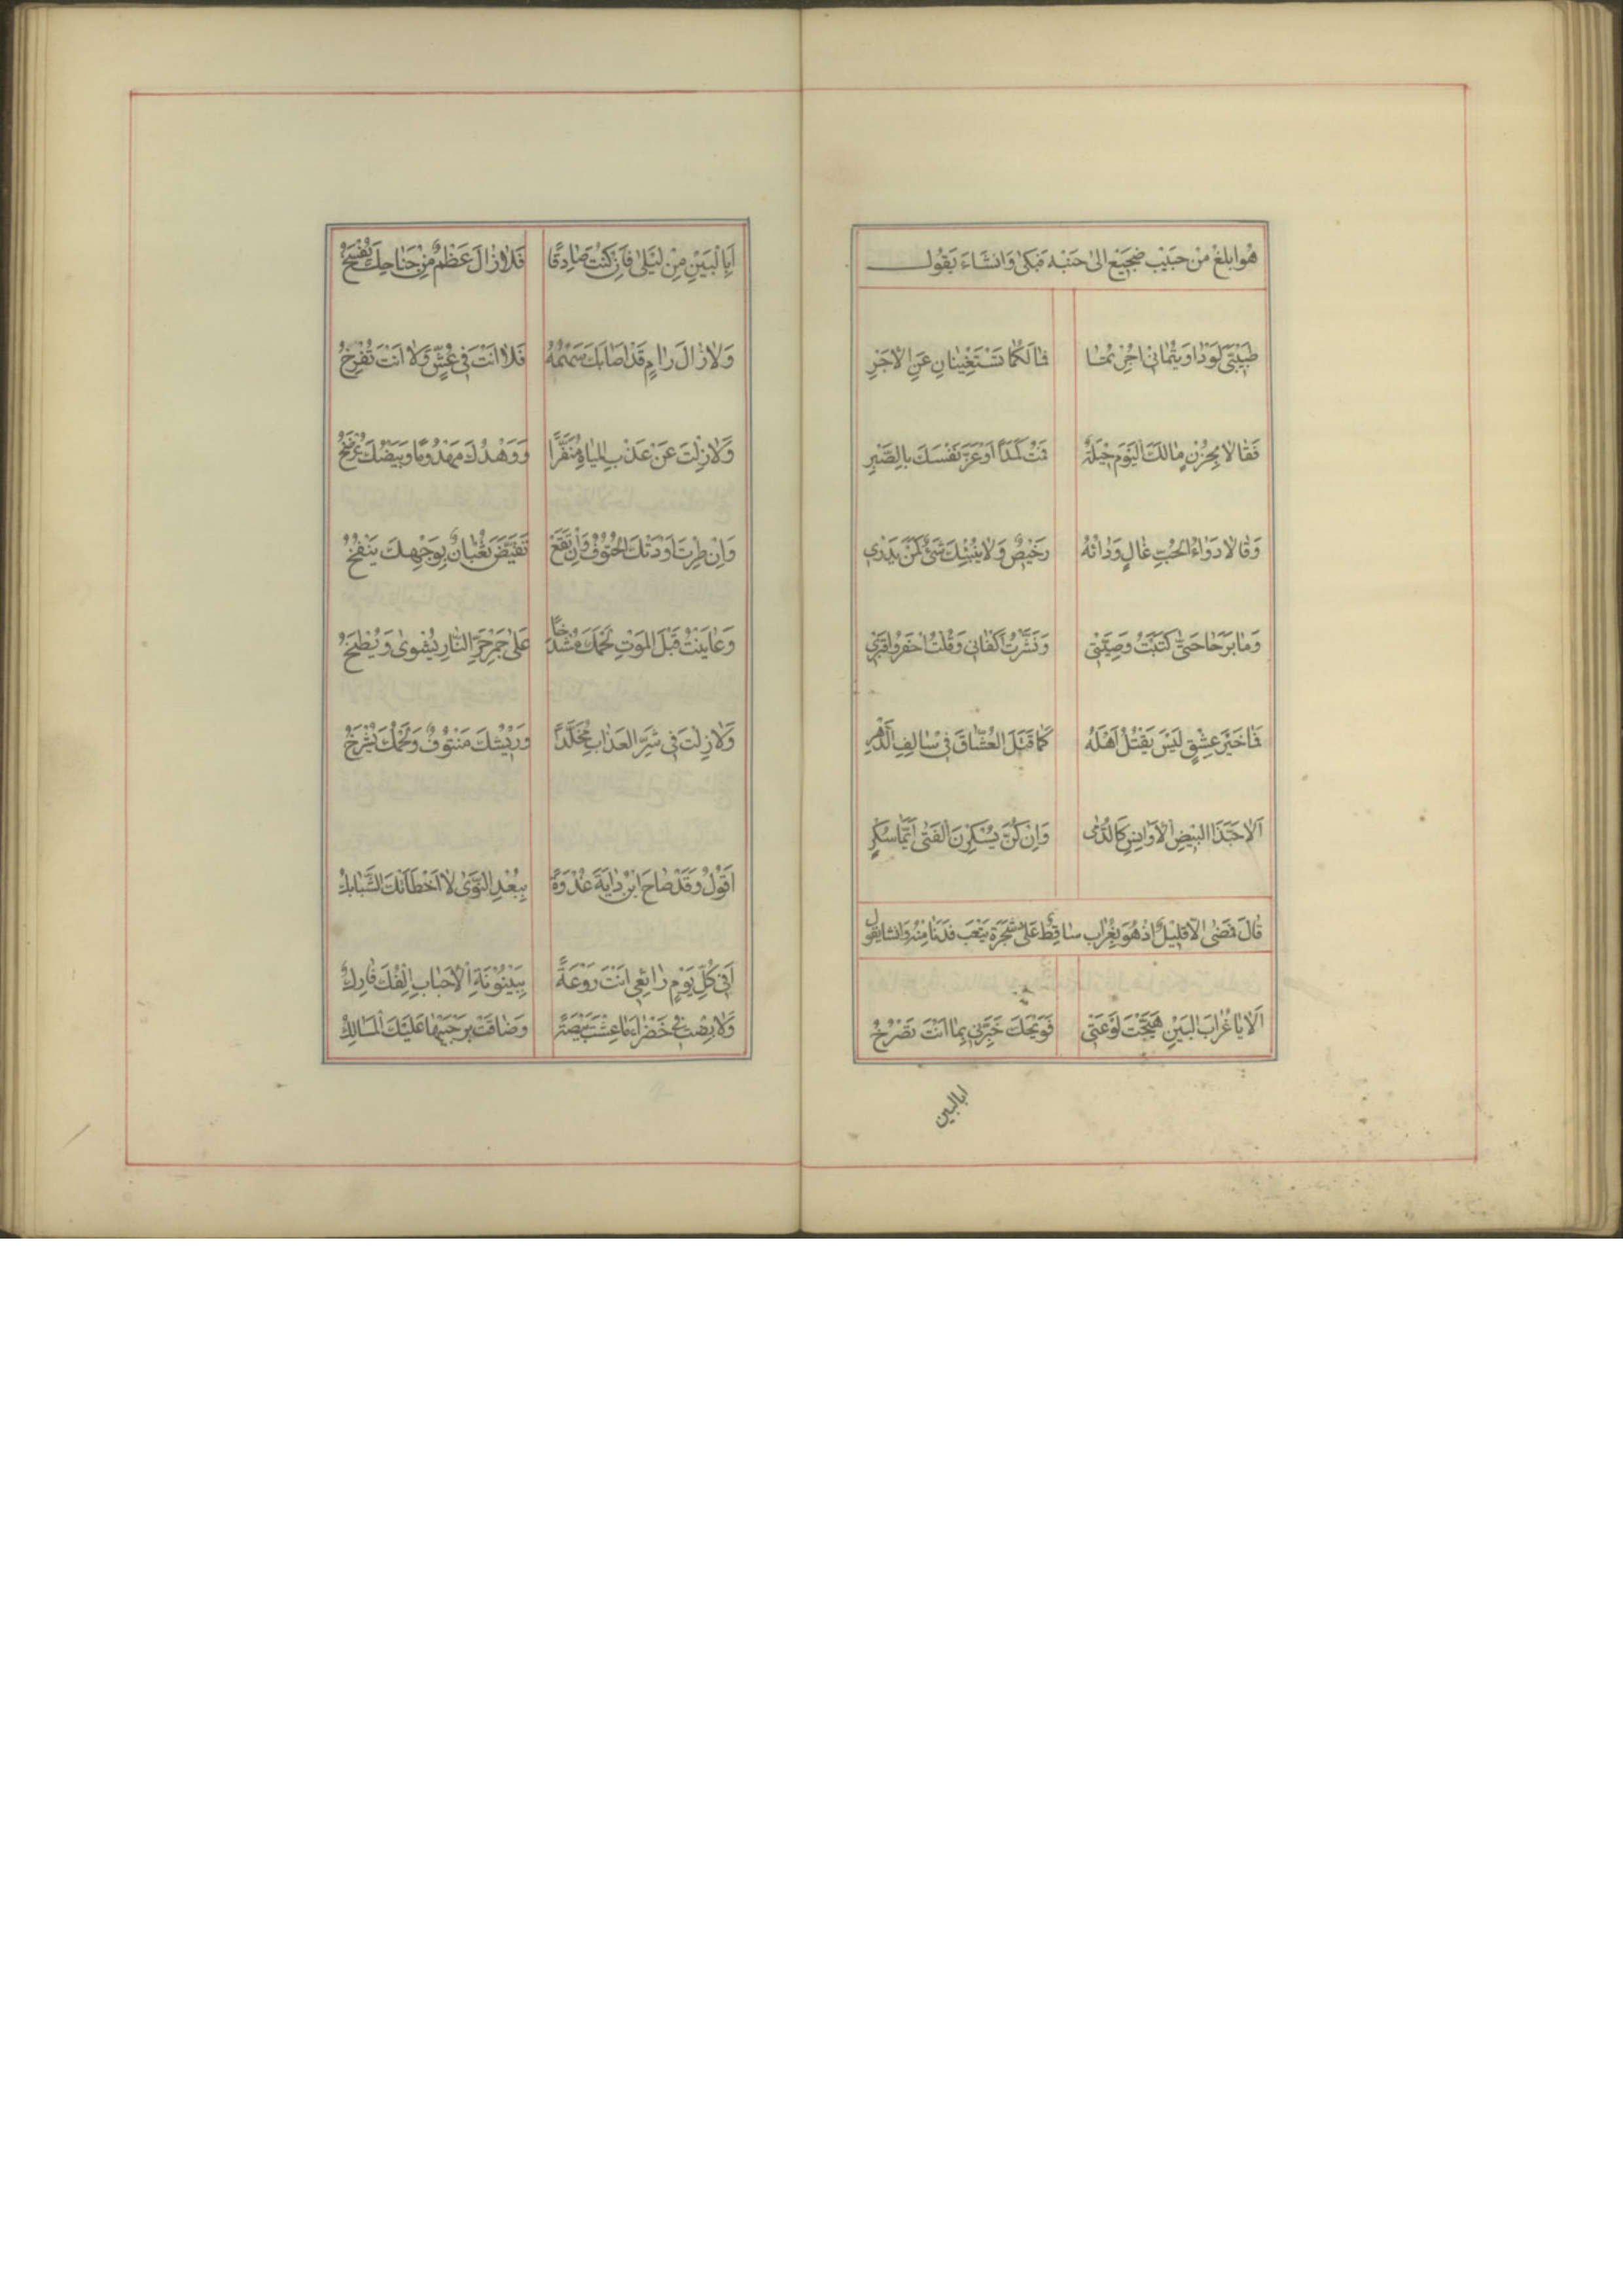 هُوَابلغ مِنْ حَبيْب ضجيْع الىٰ جَنْبِه فَبَكىٰ وَانشَاءَ يَقُول
طَبيْبَيَّ لَوْدَاوَيتُمانىْ اجُرْتُمَا فمَالَكُما تَسْتَغْنِيَانِ عَنِ الاَجْرِ
فَقالا بِحُزْنٍ مالكَ اليَوْم حيْلَةٌ فَمُتْ كَمَدًا اَوْعَزِّ نَفْسَكَ بالصَّبْرِ
وَقالا دَوَاءُ الحُبِّ غالٍ وَدَائهُ رَخيْصٌ وَلايُنْبِئكَ شَئٌ كَمَنْ يَدْرى
وَمابَرَحَا حَتىّٰ كَتَبْتُ وَصِيَّتىْ وَنَشَّرْتُ اَكفَانى وَقُلْتُ احْفِرُواقَبْرى
فَماخَيْرُعِشْقٍ لَيْسَ يَقْتُلُ اَهْلَهُ كَمَا قَتَلَ العُشّاقَ فىْ سَالِفِ الدَّهْرِ
اَلاحَبَّذَا البيْضِ الاَوانِسِ كَالدُّمٰى وَاِنْ كُنَّ يُسْكِرْنَ الفَتىٰ اَيَّمَاسُكْرٍ
قالَ فمَضٰى الاّقليْلٌ اذْهُوَبِغُرابٍ ساقِطٍ عَلىٰ شَجَرَة يَنْعَب فدَنَا مِنْهُ وَانشايَقول
اَلايَا غُرَابَ البَيْنِ هَيَّجْتَ لَوْعَتىْ فَوَيْحَكَ خَبِّرْنىْ بِمَا اَنْتَ تَصْرُخُ
ابالبين
اَبِالْبَيْنِ مِنْ لَيْلىٰ فَاِنْ كُنْتَ صَادِقًا فَلازَالَ عَظْمٌ مِنْ جَناحِكَ يُفْسَخُ
وَلازالَ رَامٍ قَدْ اَصَابَكَ سَهْمُهُ فَلااَنْتَ فىْ عُشٍّ وَلااَنْتَ تُفْرِخُ
وَلازِلْتَ عَنْ عَذْبِ المياهِ مُنَفَّرًا وَوَهْدُكَ مَهْدُومًا وَبَيْضُكَ يُرْضَخُ
وَاِنْ طِرْتَ اَوْدَتْكَ الحُتُوْفُ وَاِنْ تَقَعْ تَقَيَّضَ ثُعْبَانٌ بِوَجْهِكَ يَنْفُخُ
وَعَايَنْتَ قَبْلَ المَوْتِ لَحْمَكَ مُشْدَخًا عَلىٰ جَمْرِ حَرِّ النّارِ يُشْوىٰ وَيُطبَخُ
وَلازِلْتَ فىْ شَرِّ العَذابِ مُخَلَّدًا وَرِيْشُكَ مَنْتُوْفٌ وَلَحْمُكَ يُشْرَخُ
اَقُوْلُ وَقَدْ صَاحَ ابْنُ دَايَةَ غُدْوَةً بِبُعْدِ النَّوىٰ لااَخْطَاَتْكَ الشَّبَابكُ
اَفىْ كُلِّ يَوْمٍ رائِعىْ اَنْتَ رَوْعَةً بِبَيْنُوْنَةِ الاَحْبَابِ اِلْفُكَ فَارِكُ
وَلابِضْتَ فىْ خَضْراءَ مَاعِشْتَ بَيْضَةً وَضَاقَتْ بِرَحْبَيْهَا عَلَيْكَ المَسَالِكُ